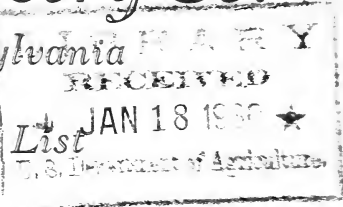 ylvania
LIBRARY
RECEIVED
List JAN 18 ★
U. S. Department of Agriculture.